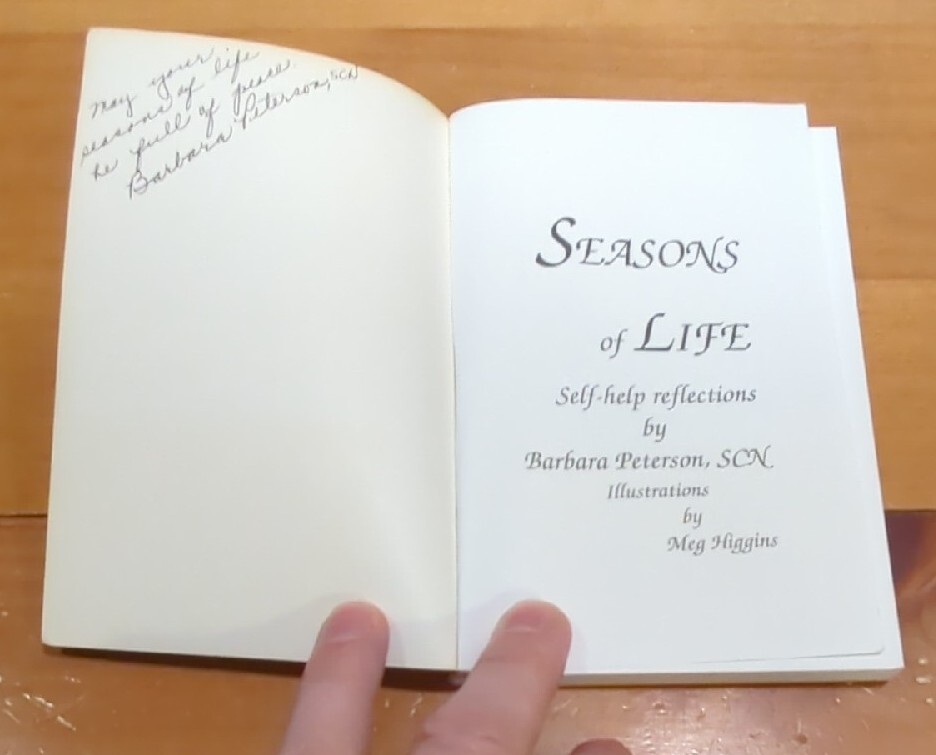 May your
seasons of life
be full of peace.
Barbara Peterson, SCN
SEASONS
of LIFE
Self-help reflections
by
Barbara Peterson, SCN
Illustrations
by
Meg Higgins